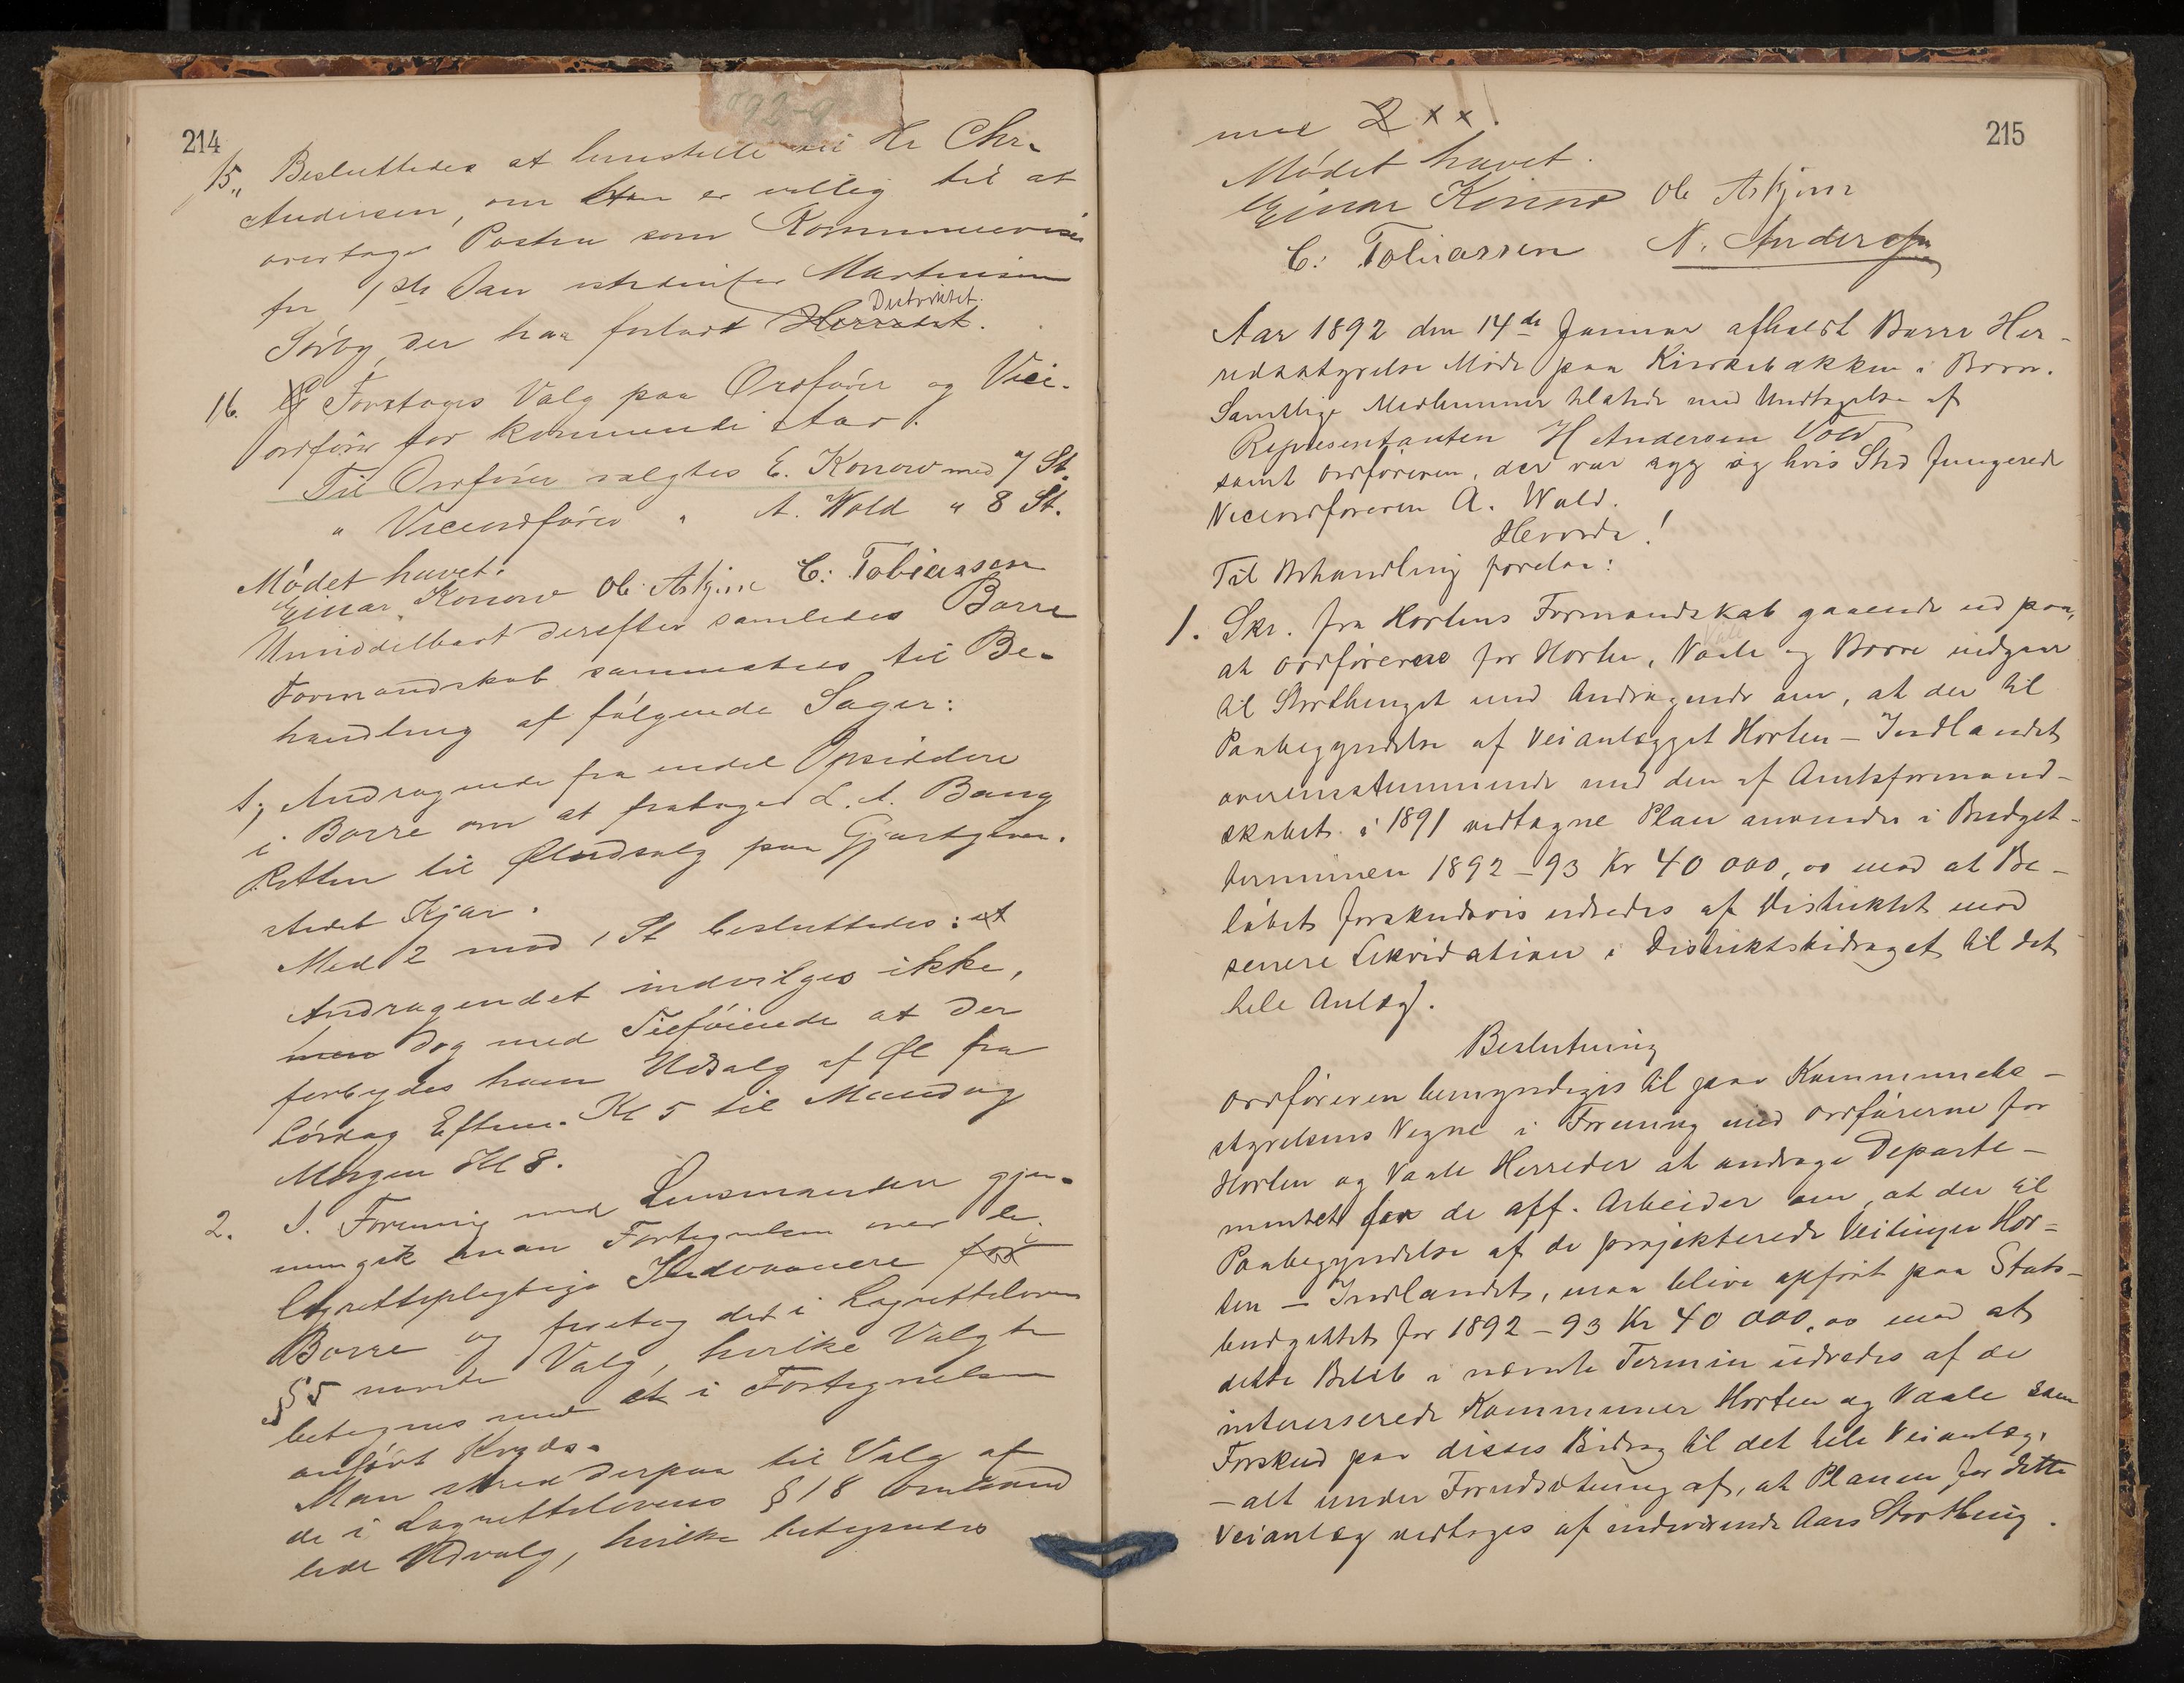 214
1892-9
15. Besluttedes at henstille til Hr Chr.
Andersen, om Han er villig til at
overtage Posten som Kommunerevisor
fra 1ste Jan istedenfor Martinius
Distriktet.
Sörby, der har forladt Herredet.
16. Foretoges Valg paa Ordförer og Vice-
ordförer for kommende Aar.
Til Ordförer valgtes E. Konow med 7 St.
" Viceordförer " A. Wold " 8 St.
Mödet hævet.
Einar Konow Ole Askjem C: Tobiassen
Umiddelbart derefter samledes Borre
Formandskab sammesteds til Be-
handling af fölgende Sager:
1, Andragende fra endel Opsiddere
i Borre om at fratages L. A. Bang
Retten til Öludsalg paa Gjæstgiver-
stedet Kjær.
Med 2 mod 1 St besluttedes: at
Andragendet indvilges ikke,
men dog med Tilföiende at der
forbydes ham Udsalg af Öl fra
Lördag Efterm. Kl 5 til Mandag
Morgen Kl 8.
2. I Forening med Lensmanden gjen-
nemgik man Fortegnelsen over de
lagrettepligtige Indvaanere for i
Borre og foretog det i Lagretteloven
§ 5 nævnte Valg, hvilke Valgte
betegnes med et i Fortegnelsen
anfört Kryds.
Man skred derpaa til Valg af
de i Lagrettelovens § 18 omhand
lede Udvalg, hvilke betegnedes
215
med 2 x x.
Mödet hævet.
Einar Konow Ole Askjem
C: Tobiassen N. Andersen
Aar 1892 den 14de Januar afholdt Borre Her-
redsstyrelse Möde paa Kirkebakken i Borre.
Samtlige Medlemmer tilstede med Undtagelse af
Repræsentanten H Andersen Vold
samt ordföreren, der var syg og hvis Sted fungerede
Viceordföreren A. Wold.
Hvorda!
Til Behandling forelaa:
1. Skr. fra Hortens Formandskab gaaende ud paa,
at ordförerne for Horten, Vaale og Borre indgaar
til Storthinget med Andragende om, at der til
Paabegyndelse af Veianlægget Horten – Indlandet
overensstemmende med den af Amtsformand-
skabet i 1891 vedtagne Plan anvendes i Budget-
terminen 1892–93 Kr 40 000,00 mod at Be-
löbet forskudsvis udredes af Distriktet mod
senere Likvidation i Distriktsbidraget til det
hele Anlæg.
Beslutning
Ordföreren bemyndiges til paa Kommunebe-
styrelsens Vegne i Forening med ordförerne for
Horten og Vaale Herreder at andrage Departe-
mentet for de off. Arbeider om, at der til
Paabegyndelse af de projekterede Veilinger Hor-
ten – Indlandet, maa blive opfört paa Stats-
budgettet for 1892–93 Kr 40 000,00 mod at
dette Belöb i nævnte Termin udredes af de
interesserede Kommuner Horten og Vaale som
Forskud paa disses Bidrag til det hele Veianlæg,
– alt under Forudsætning af, at Planen for dette
Veianlæg vedtages af indeværende Aars Storthing.